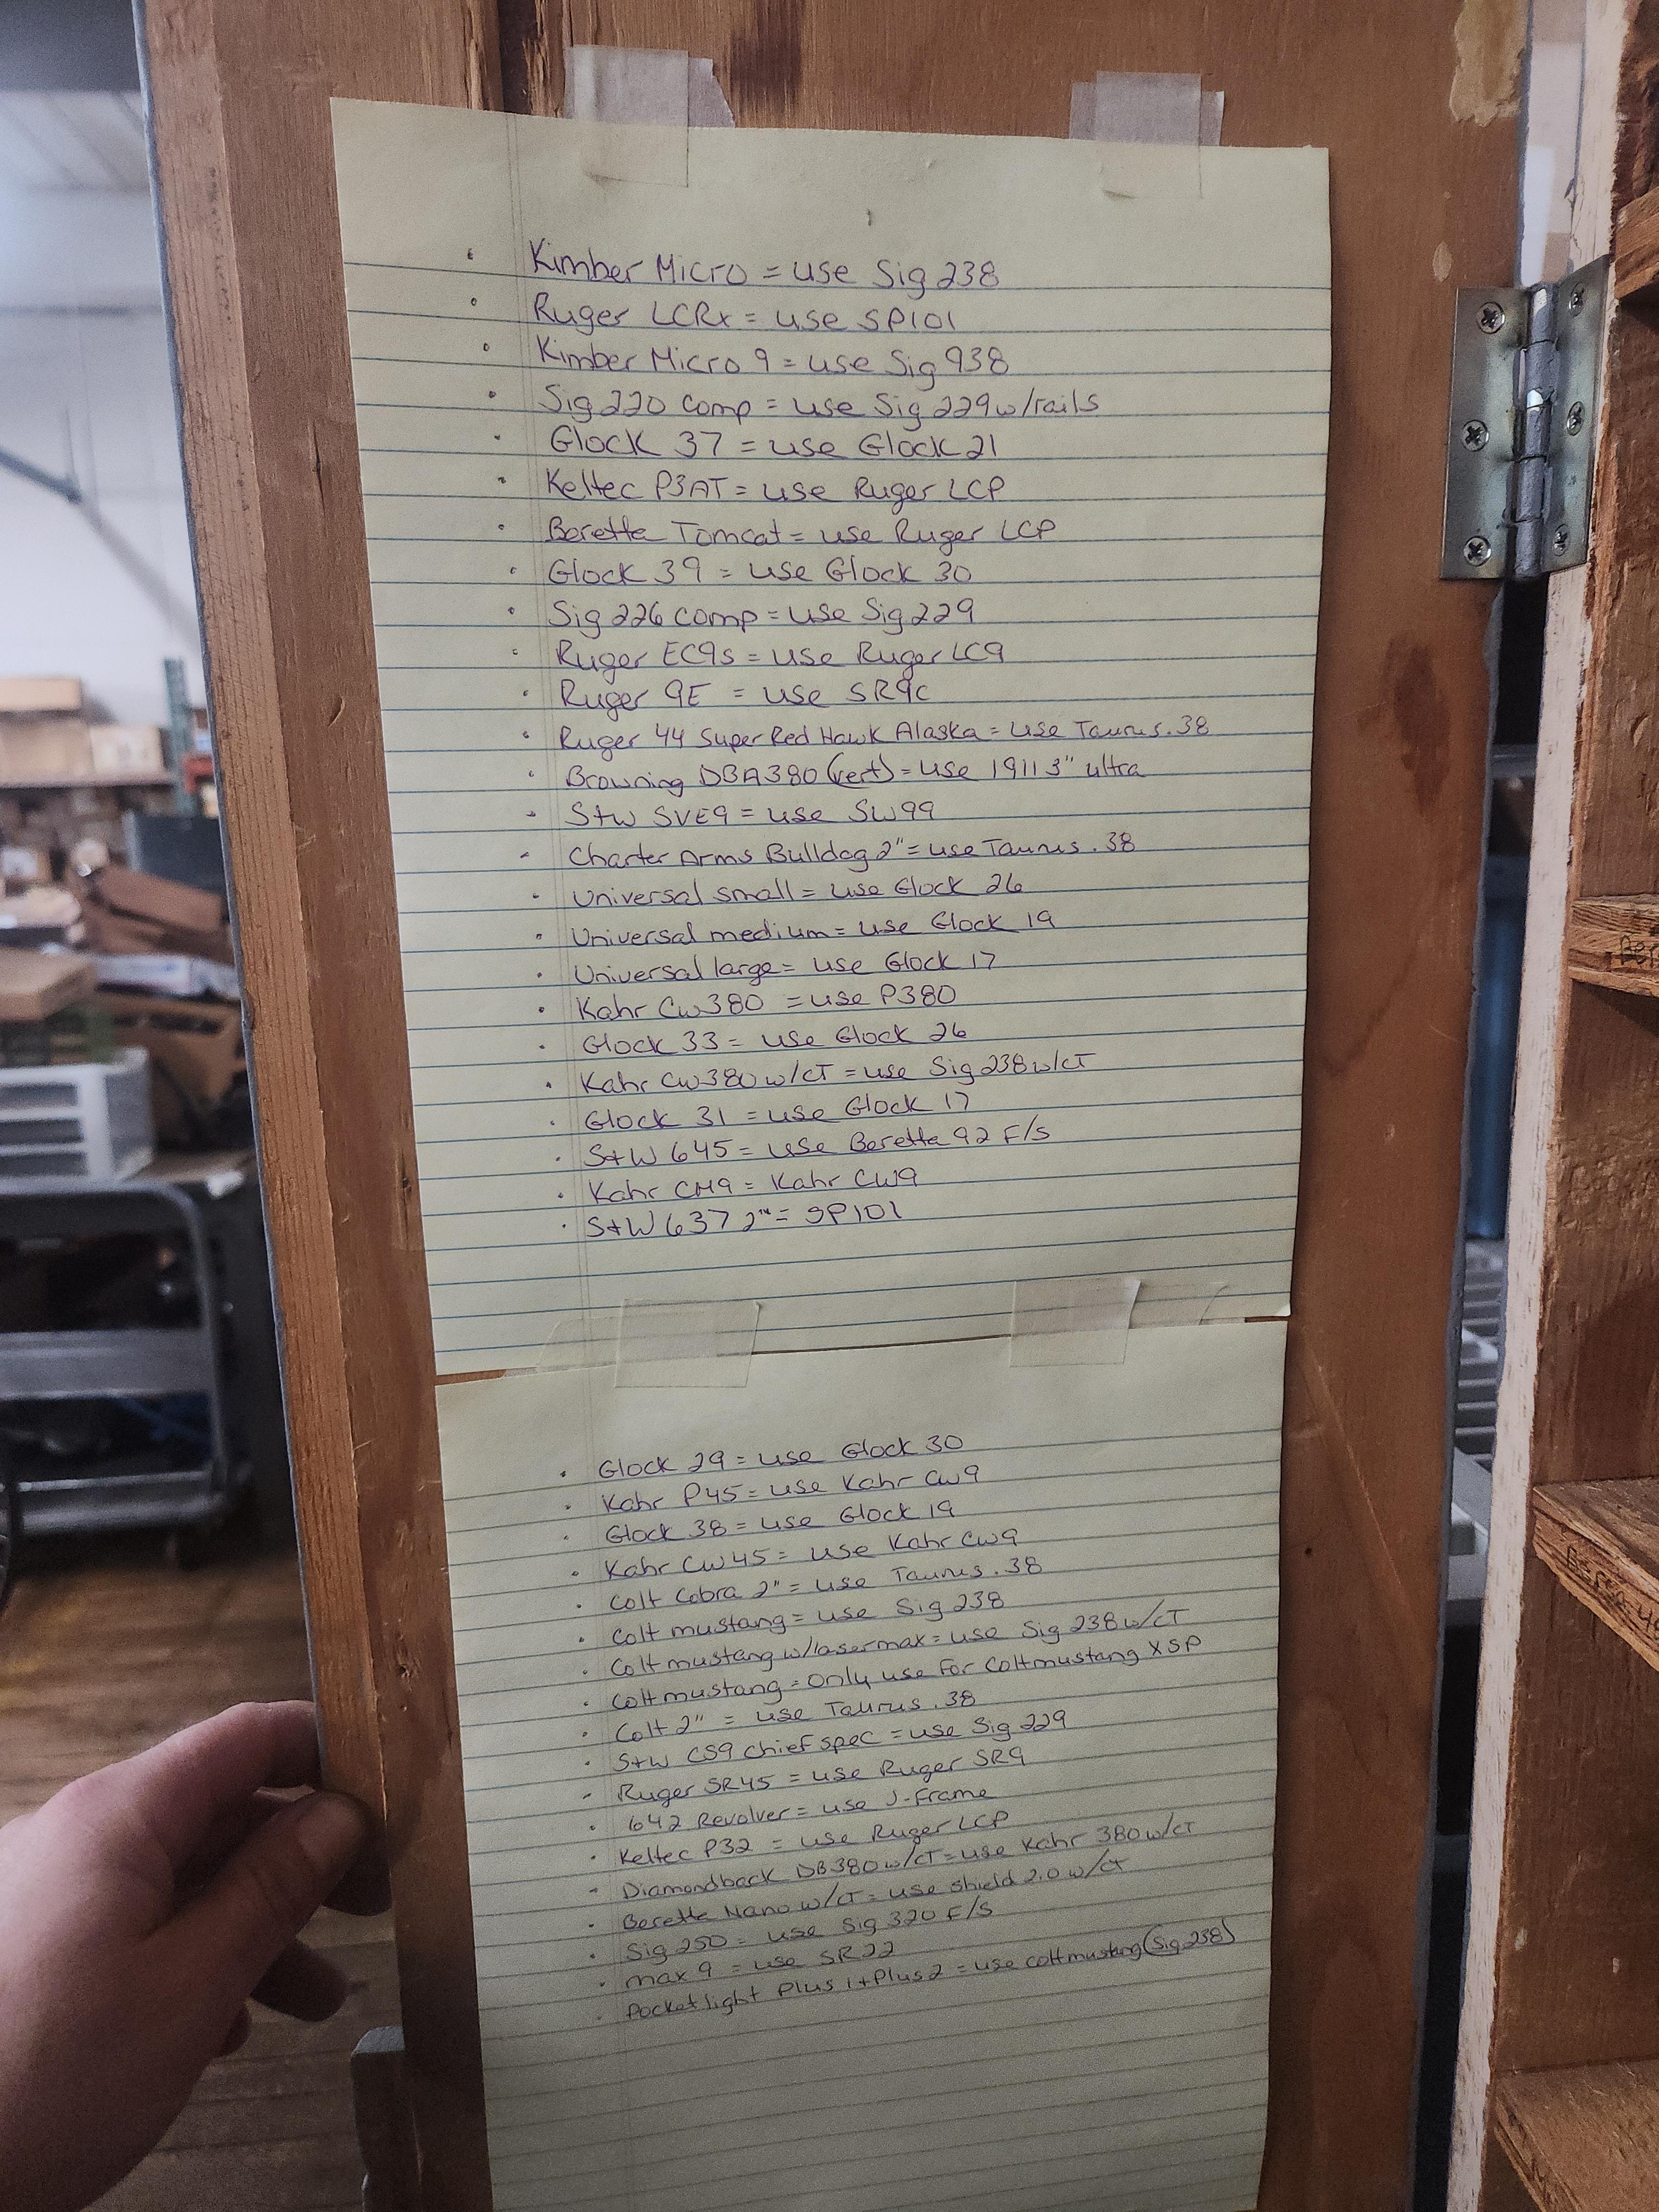 Kimber Micro = use Sig 238
Ruger LCRx = use SP101
Kimber Micro 9 = use Sig 938
Sig 220 comp = use Sig 229 w/rails
Glock 37 = use Glock 21
Keltec P3AT = use Ruger LCP
Beretta Tomcat = use Ruger LCP
Glock 39 = use Glock 30
Sig 226 comp = use Sig 229
Ruger EC9s = use Ruger LC9
Ruger 9E = use SR9c
Ruger 44 Super Red Hawk Alaska = use Taurus .38
Browning DBA380 (vert) = use 1911 3" ultra
S+W SVE9 = use SW99
Charter Arms Bulldog 2" = use Taurus .38
Universal small = use Glock 26
Universal medium = use Glock 19
Universal large = use Glock 17
Kahr CW380 = use P380
Glock 33 = use Glock 26
Kahr CW380 w/CT = use Sig 238 w/CT
Glock 31 = use Glock 17
S+W 645 = use Beretta 92 F/S
Kahr CM9 = Kahr CW9
S+W 637 2" = SP101
Glock 29 = use Glock 30
Kahr P45 = use Kahr CW9
Glock 38 = use Glock 19
Kahr CW45 = use Kahr CW9
Colt Cobra 2" = use Taurus .38
Colt mustang = use Sig 238
Colt mustang w/lasermax = use Sig 238 w/CT
Colt mustang = only use For Colt mustang XSP
Colt 2" = use Taurus .38
S+W CS9 Chief spec = use Sig 229
Ruger SR45 = use Ruger SR9
642 Revolver = use J-Frame
Keltec P32 = use Ruger LCP
Diamondback DB380 w/CT = use Kahr 380 w/CT
Beretta Nano w/CT = use shield 2.0 w/CT
Sig 250 = use Sig 320 F/S
max 9 = use SR22
Pocket light Plus 1 + Plus 2 = use colt mustang (Sig 238)